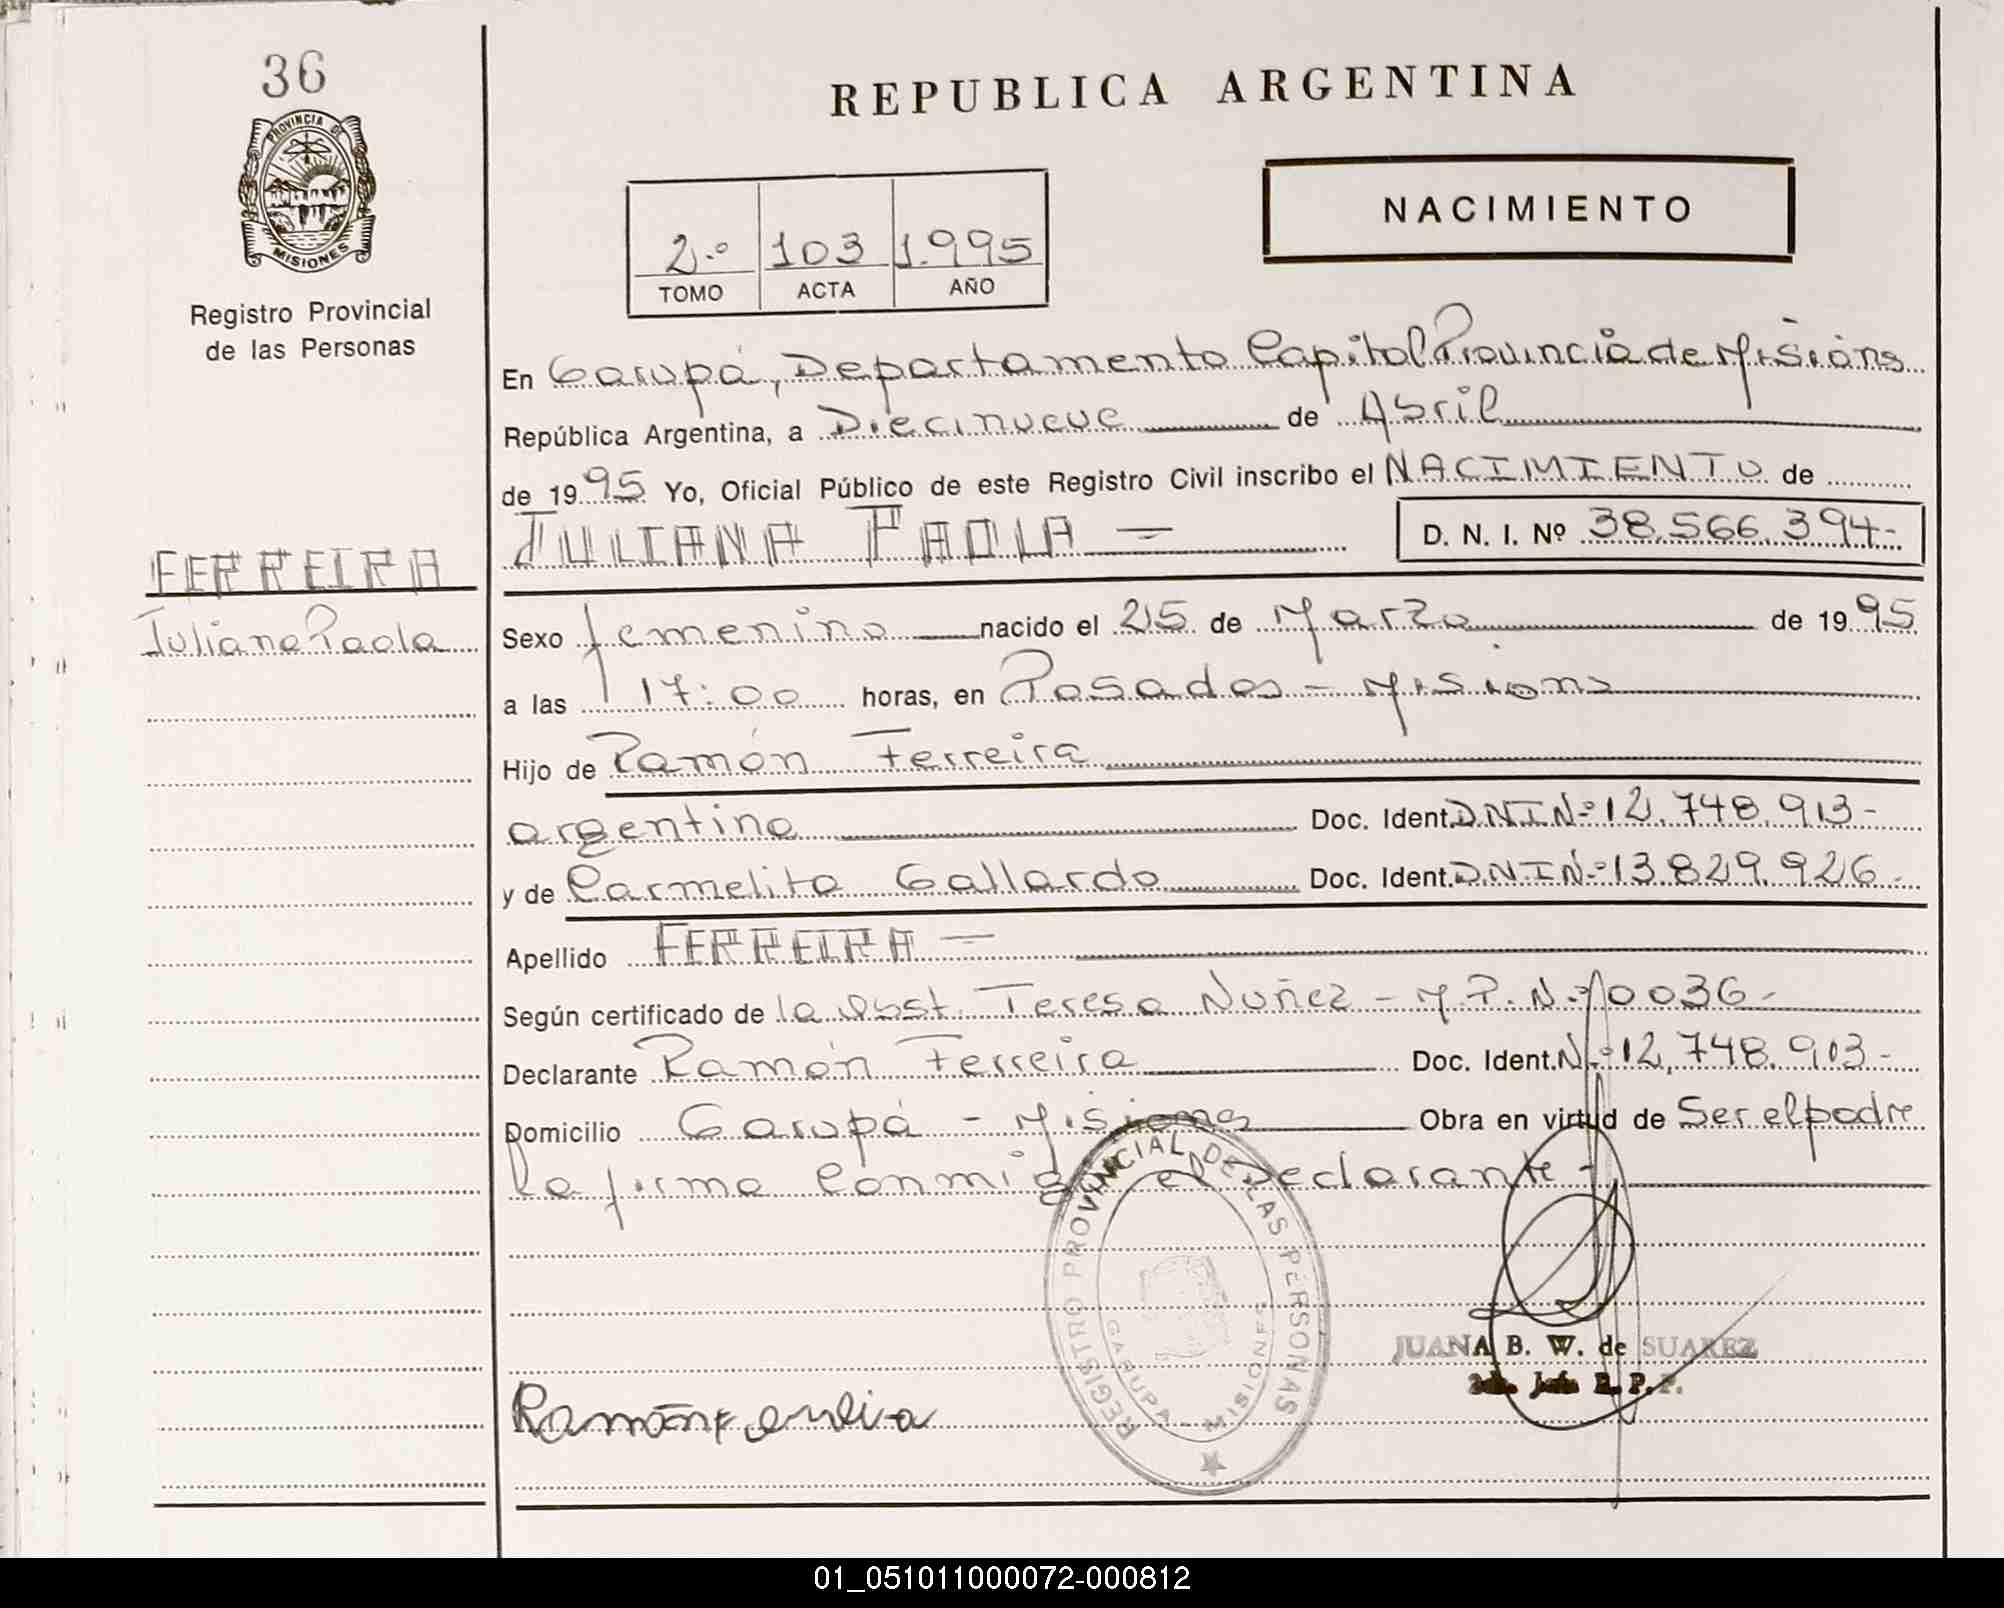 36
PROVINCIA DE
MISIONES
Registro Provincial
de las Personas
FERREIRA
Juliana Paola
REPUBLICA ARGENTINA
NACIMIENTO
2.º 103 1.995
TOMO ACTA AÑO
En Garupá, Departamento Capital Provincia de Misiones
República Argentina, a Diecinueve de Abril
de 1995 Yo, Oficial Público de este Registro Civil inscribo el NACIMIENTO de
JULIANA PAOLA - D. N. I. Nº 38.566.394-
Sexo femenino nacido el 25 de Marzo de 1995
a las 17:00 horas, en Posadas - Misiones
Hijo de Ramón Ferreira
argentino Doc. Ident. D.N.I Nº 12.748.913-
y de Carmelita Gallardo Doc. Ident. D.N.I Nº 13.829.926-
Apellido FERREIRA -
Según certificado de la Obst. Teresa Nuñez - M.P. Nº 0036-
Declarante Ramón Ferreira Doc. Ident. Nº 12.748.913-
Domicilio Garupá - Misiones Obra en virtud de Ser el padre
La firma Conmigo el Declarante-
REGISTRO PROVINCIAL DE LAS PERSONAS
GARUPA - MISIONES
JUANA B. W. de SUAREZ
R. P. P.
Ramón Ferreira
01_051011000072-000812